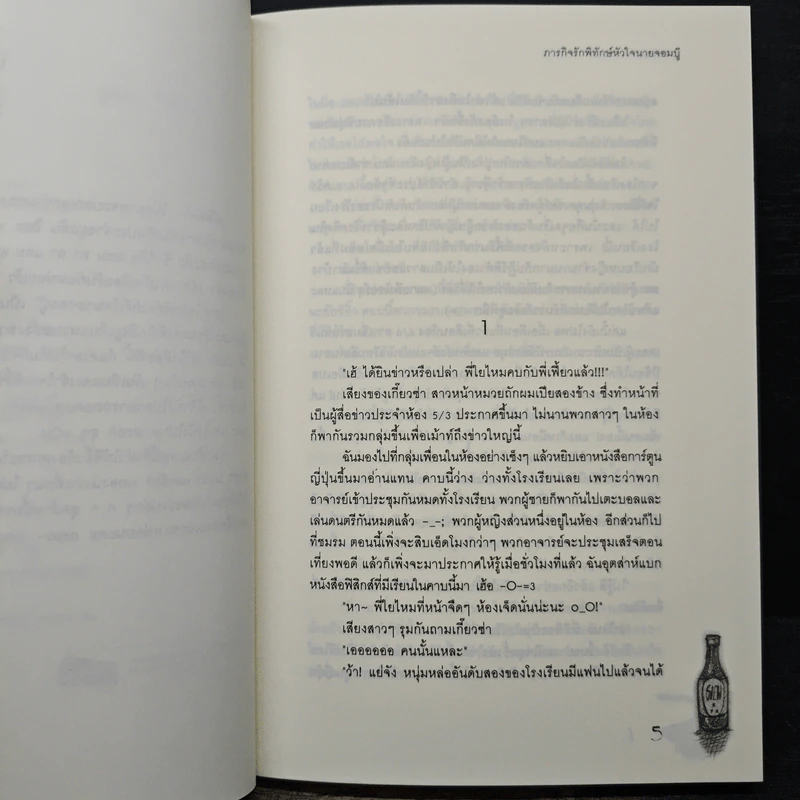 ภารกิจรักพิทักษ์หัวใจนายจอมบู๊
1
"เฮ้ ได้ยินข่าวหรือเปล่า พี่ไยไหมคบกับพี่เฟี้ยวแล้ว!!!"
เสียงของเกี๊ยวซ่า สาวหน้าหมวยถักผมเปียสองข้าง ซึ่งทำหน้าที่
เป็นผู้สื่อข่าวประจำห้อง 5/3 ประกาศขึ้นมา ไม่นานพวกสาวๆ ในห้อง
ก็พากันรวมกลุ่มขึ้นเพื่อเม้าท์ถึงข่าวใหญ่นี้
ฉันมองไปที่กลุ่มเพื่อนในห้องอย่างเซ็งๆ แล้วหยิบเอาหนังสือการ์ตูน
ญี่ปุ่นขึ้นมาอ่านแทน คาบนี้ว่าง ว่างทั้งโรงเรียนเลย เพราะว่าพวก
อาจารย์เข้าประชุมกันหมดทั้งโรงเรียน พวกผู้ชายก็พากันไปเตะบอลและ
เล่นดนตรีกันหมดแล้ว -_-; พวกผู้หญิงส่วนหนึ่งอยู่ในห้อง อีกส่วนก็ไป
ที่ชมรม ตอนนี้เพิ่งจะสิบเอ็ดโมงกว่าๆ พวกอาจารย์จะประชุมเสร็จตอน
เที่ยงพอดี แล้วก็เพิ่งจะมาประกาศให้รู้เมื่อชั่วโมงที่แล้ว ฉันอุตส่าห์แบก
หนังสือฟิสิกส์ที่มีเรียนในคาบนี้มา เฮ้อ -O-=3
"หา~ พี่ไยไหมที่หน้าจืดๆ ห้องเจ็ดนั่นน่ะนะ o_O!"
เสียงสาวๆ รุมกันถามเกี๊ยวซ่า
"เออออออ คนนั้นแหละ"
"ว้า! แย่จัง หนุ่มหล่ออันดับสองของโรงเรียนมีแฟนไปแล้วจนได้
5